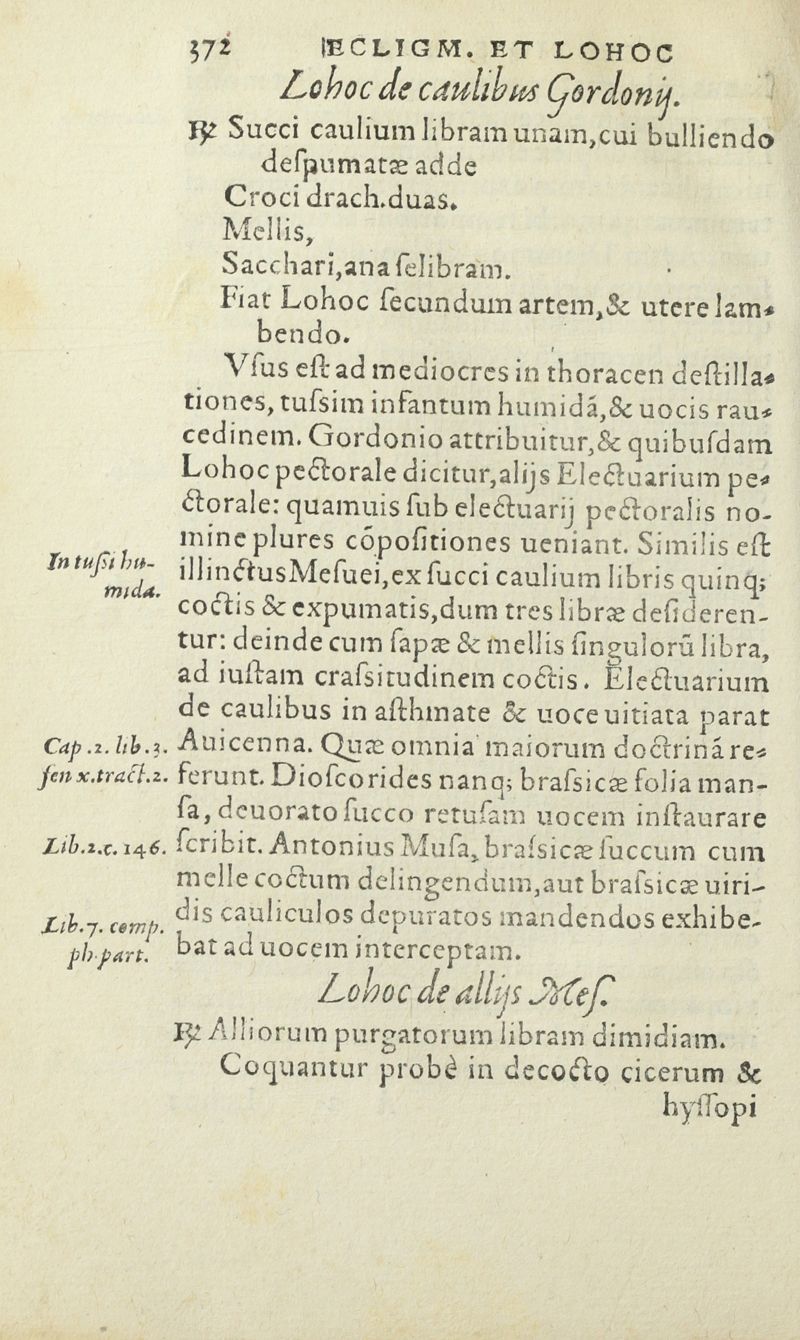 372 ECLIGM. ET LOHOC
Lohoc de caulibus Gordonij.
℞ Succi caulium libram unam,cui bulliendo
deſpumatæ adde
Croci drach.duas.
Mellis,
Sacchari,ana ſelibram.
Fiat Lohoc ſecundum artem,& utere lam-
bendo.
Vſus eſt ad mediocres in thoracen deſtilla-
tiones, tuſsim infantum humidá,& uocis rau-
cedinem. Gordonio attribuitur,& quibuſdam
Lohoc pectorale dicitur,alijs Electuarium pe-
ctorale: quamuis ſub electuarij pectoralis no-
mine plures cōpoſitiones ueniant. Similis eſt
In tuſsi hu-
mida.
illinctus Meſuei,ex ſucci caulium libris quinq;
coctis & expumatis,dum tres libræ deſideren-
tur: deinde cum ſapæ & mellis ſingulorū libra,
ad iuſtam craſsitudinem coctis. Electuarium
de caulibus in aſthmate & uoce uitiata parat
Cap.2.lib.3. Auicenna. Quæ omnia maiorum doctriná re-
fen x.tract.2. ferunt. Dioſcorides nanq; braſsicæ folia man-
ſa, deuorato ſucco retuſam uocem inſtaurare
Lib.2.c.146. ſcribit. Antonius Muſa, braſsicæ ſuccum cum
melle coctum delingendum,aut braſsicæ uiri-
Lib.7. comp. dis cauliculos depuratos mandendos exhibe-
ph.part. bat ad uocem interceptam.
Lohoc de allijs Meſ.
℞ Alliorum purgatorum libram dimidiam.
Coquantur probè in decocto cicerum &
hyſſopi